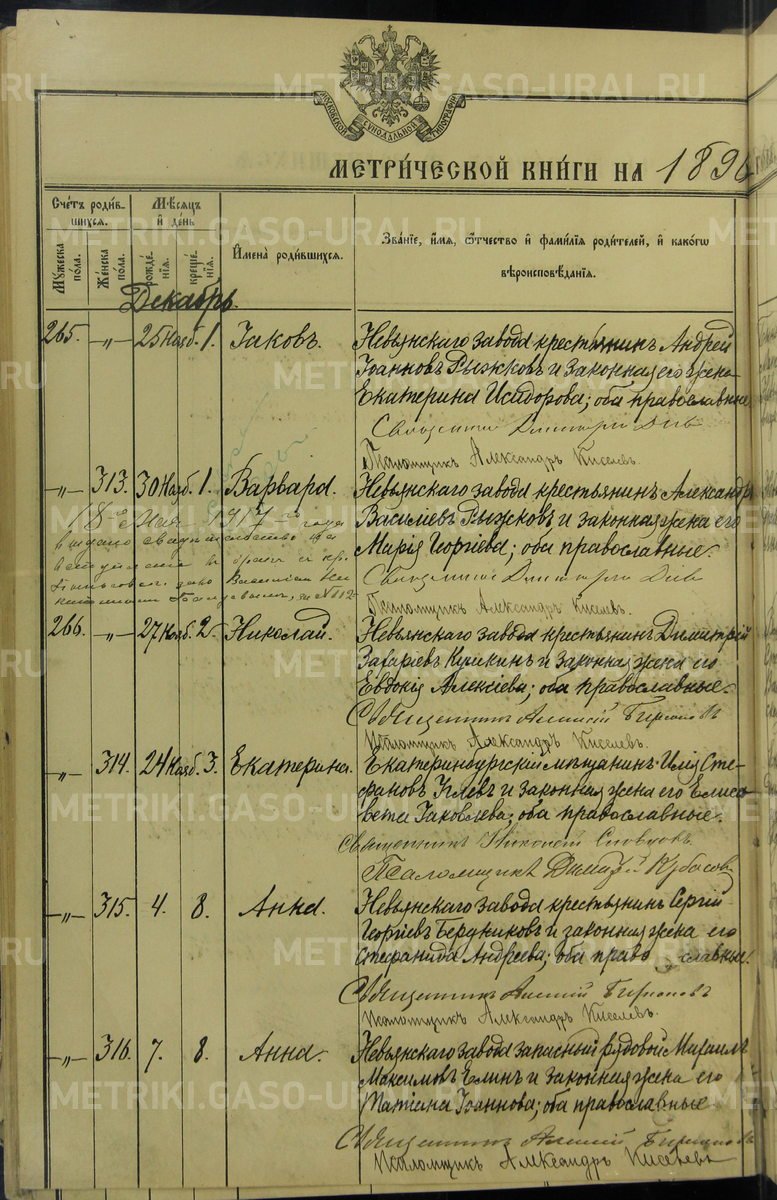 МЕТРИ́ЧЕСКОЙ КНИ́ГИ НА 1896
Сче́тъ роди́в-
шихся.
Мѣ́сяцъ
и҆ де́нь
Мꙋ́жеска по́ла.
Же́нска по́ла.
рожде́нїѧ.
креще́нїѧ.
И҆мена̀ роди́вшихсѧ.
Зва́нїе, и҆́мѧ, ѻ҆́тчество и҆ фами́лїѧ роди́телей, и҆ како́гѡ
вѣроисповѣ́данїѧ.
Декабрь.
265. —„— 25 Нояб. 1. Іаковъ. Невьянскаго завода крестьянинъ Андрей
Іоанновъ Рыжковъ и законная его жена
Екатерина Исидорова; оба православные
Священникъ Димитрій
Псаломщикъ Александръ Киселевъ.
—„— 313. 30 Нояб. 1. Варвара. Невьянскаго завода крестьянинъ Александръ
Василіевъ Рыжковъ и законная жена его
Марія Георгіева; оба православные.
18го Мая 1917го года
выдано свидѣтельство для
вступленія въ бракъ съ кр.
Василіем
за № 112
Священникъ Димитрій
Псаломщикъ Александръ Киселевъ.
266. —„— 27 Нояб. 2. Николай. Невьянскаго завода крестьянинъ Димитрій
Захаріевъ и законная жена его
Евдокія Алексіева; оба православные.
Священникъ Алексій
Псаломщикъ Александръ Киселевъ.
—„— 314. 24 Нояб. 3. Екатерина. Екатеринбургскій мѣщанинъ Илія Сте-
фановъ и законная жена его Елиса-
вета Іаковлева; оба православные.
Священникъ Николай Словцовъ
Псаломщикъ Димитрій Кубасовъ
—„— 315. 4. 8. Анна. Невьянскаго завода крестьянинъ Сергій
Георгіевъ Бердниковъ и законная жена его
Стефанида Андреева; оба православные.
Священникъ Алексій
Псаломщикъ Александръ Киселевъ.
—„— 316. 7. 8. Анна. Невьянскаго завода запасный рядовой Михаилъ
Максимовъ Елинъ и законная жена его
Татіана Іоаннова; оба православные
Священникъ Алексій
Псаломщикъ Александръ Киселевъ
METRIKI.GASO-URAL.RU